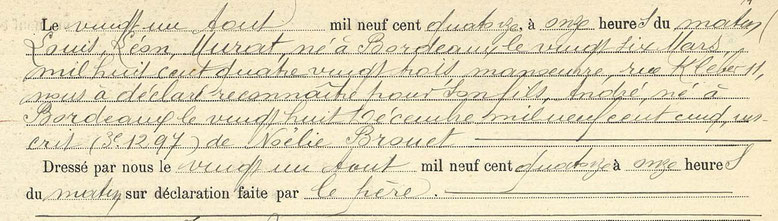 Le vingt un Aout mil neuf cent quatorze, à onze heures du matin,
Louis, Léon, Murat, né à Bordeaux, le vingt six Mars,
mil huit cent quatre vingt trois, manœuvre, rue Kleber 11,
nous à déclaré reconnaître pour son fils, André, né à
Bordeaux le vingt huit Décembre mil neuf cent cinq, ins-
crit (Son 1297) de Noélie Brouet
Dressé par nous le vingt un Aout mil neuf cent quatorze à onze heures
du matin, sur déclaration faite par le père.